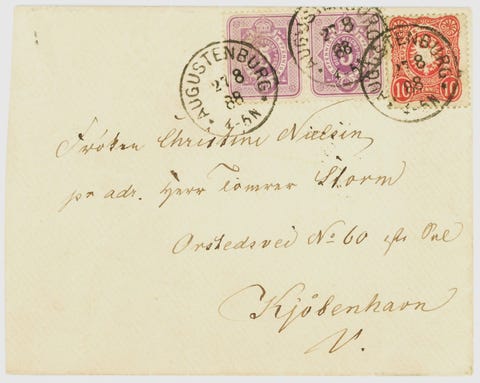 AUGUSTENBURG
27 8
88
4-5N
AUGUSTENBURG
27 8
88
4-5N
AUGUSTENBURG
27 8
88
4-5N
5
5
10
Fröken Christine Nielsen
pr adr. Herr Tömrer Storm
Orstedsvei No 60
Kjöbenhavn
V.